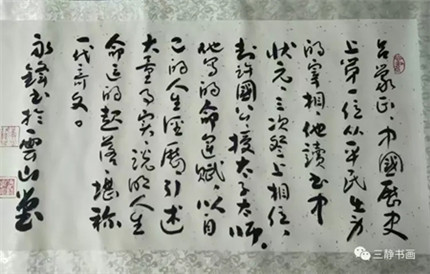 吕蒙正,中國历史
上第一位从平民出身
的宰相,他讀书中
状元,三次登上相位,
封許國公授太子太师。
他写的命运赋,以自
己的人生经历,引述
大量事实,说明人生
命运的起落,堪称
一代奇文。
永锋书於雲山堂
三静书画